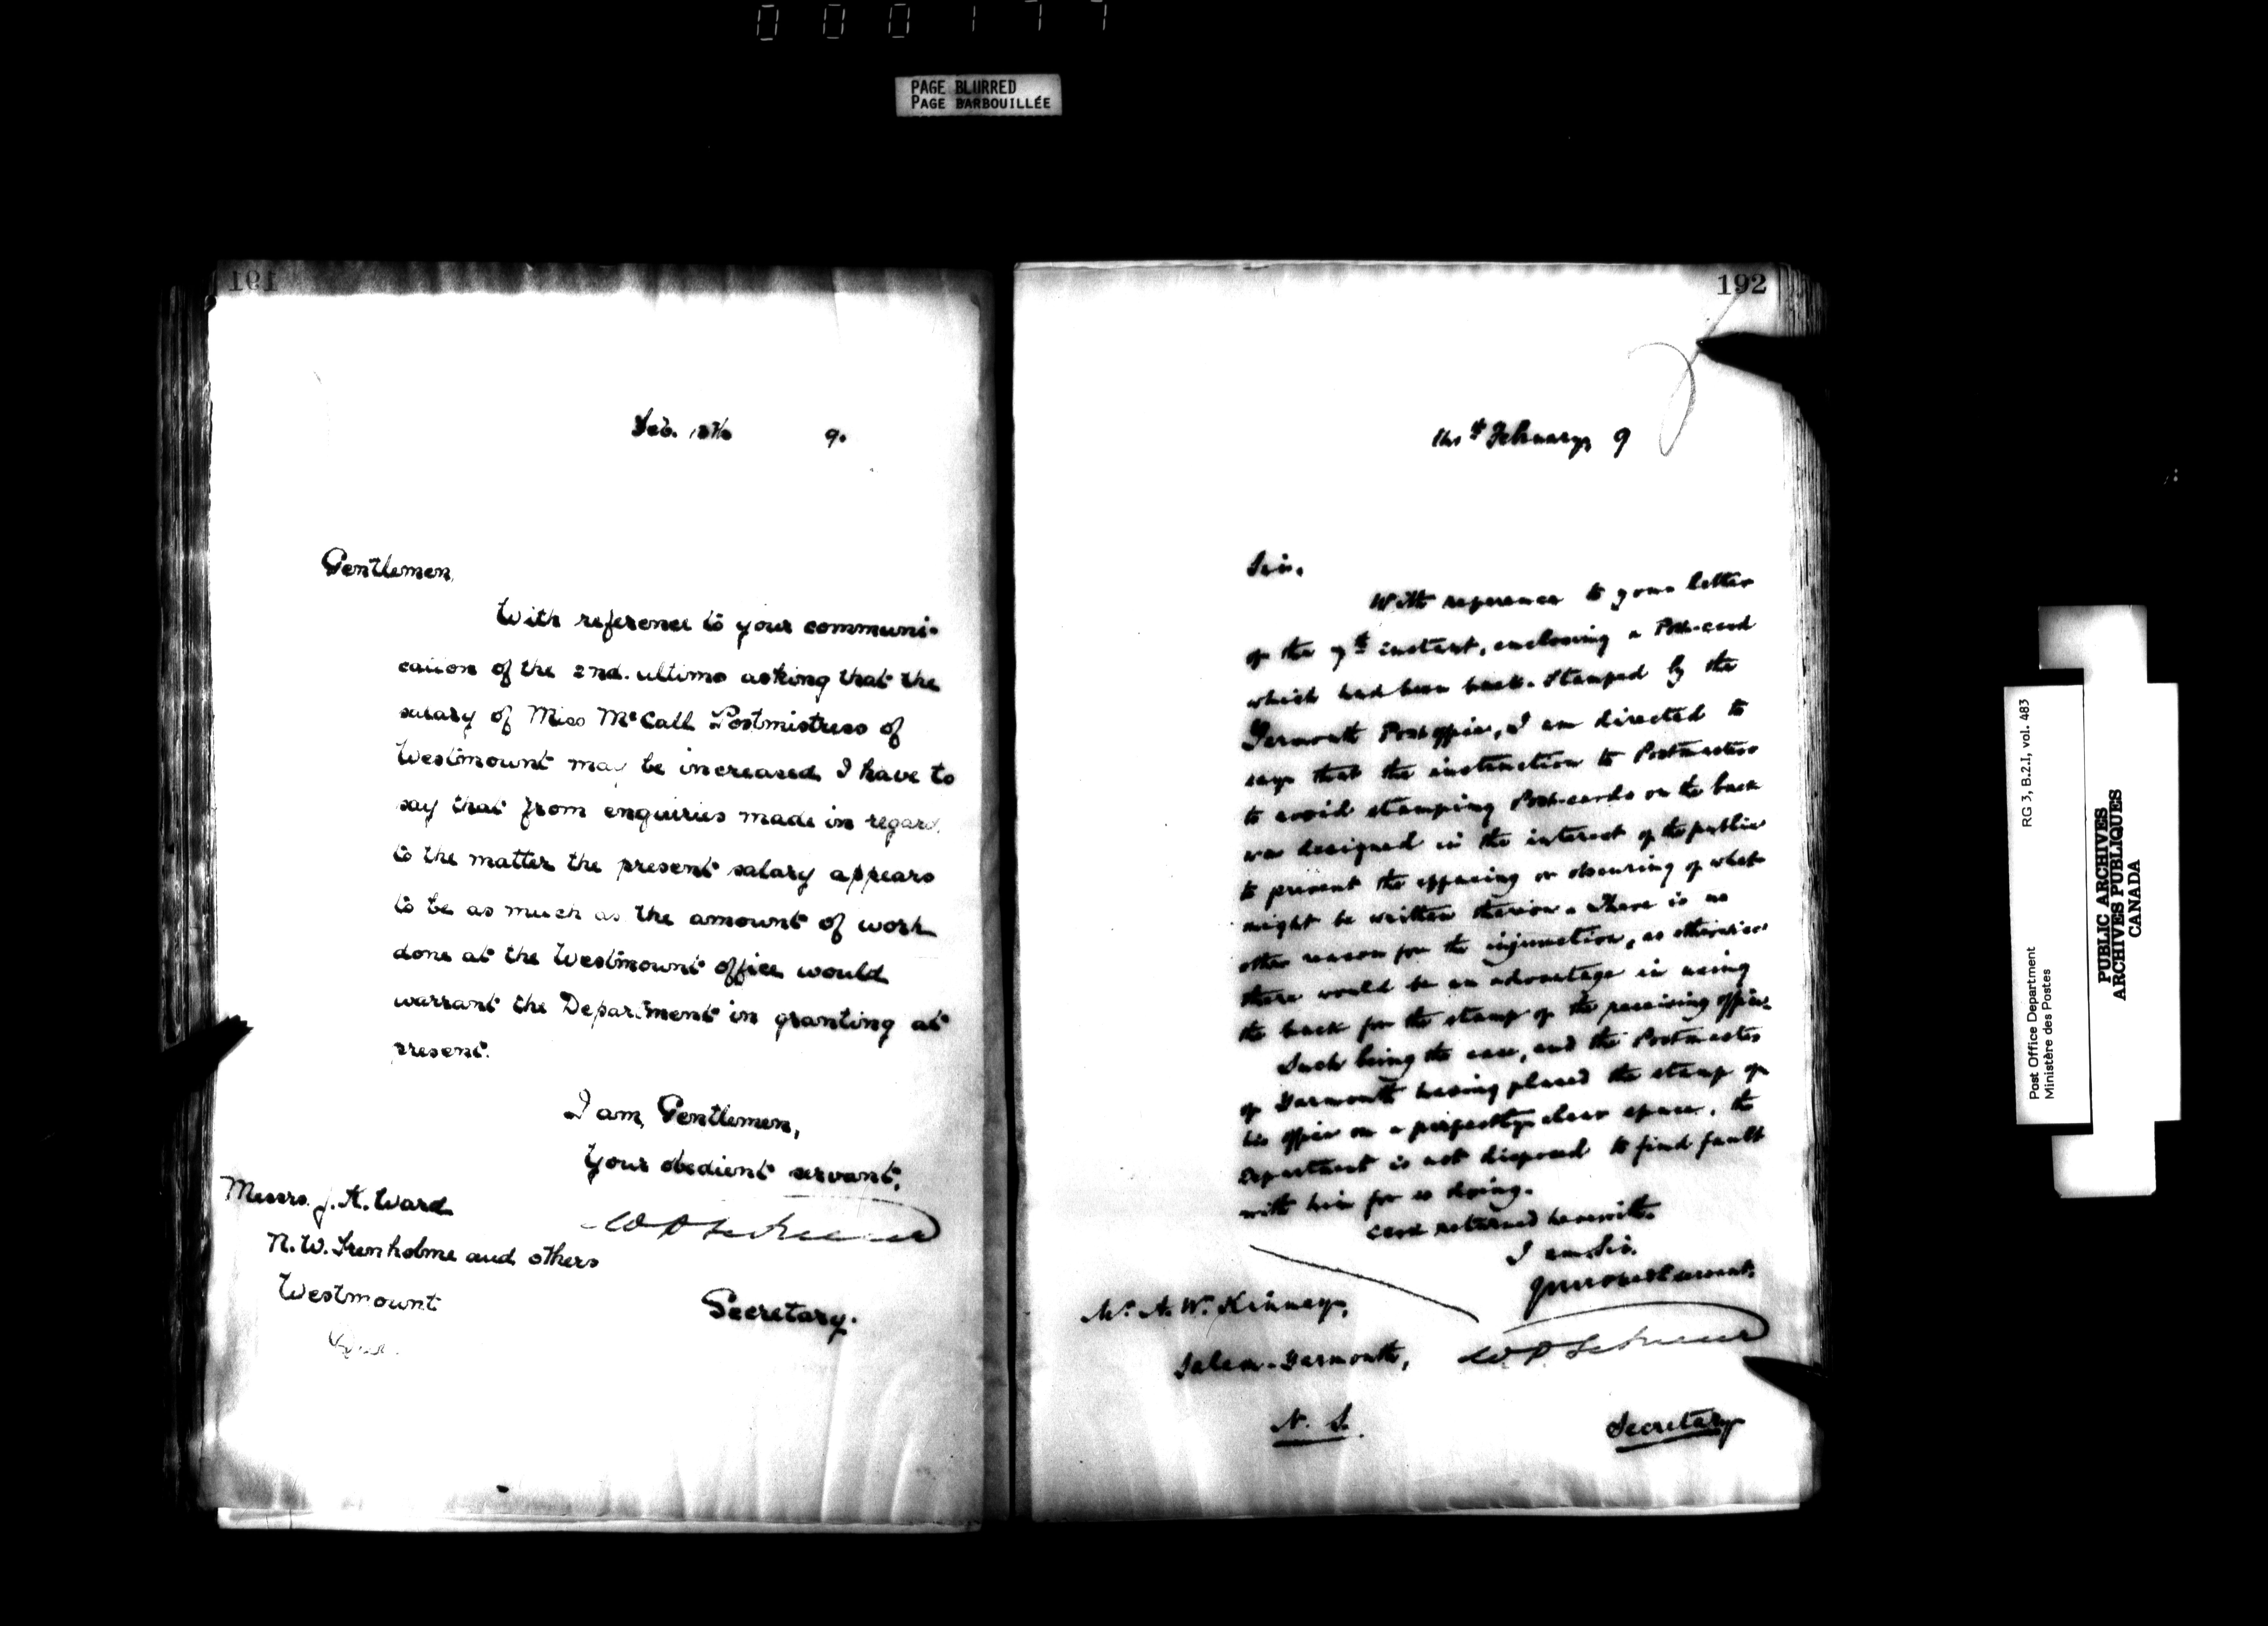 000177
PAGE BLURRED
PAGE BARBOUILLÉE
191
Feb. 9.
Gentlemen,
With reference to your communi-
cation of the 2nd. ultimo asking that the
salary of Miss McCall Postmistress of
Westmount may be increased I have to
say that from enquiries made in regard
to the matter the present salary appears
to be as much as the amount of work
done at the Westmount office would
warrant the Department in granting at
present.
I am, Gentlemen,
Your obedient servant,
Messrs. J. K. Ward
N. W. Trenholme and others
Westmount
Que.
Secretary.
192
February 9
Sir,
With reference to your letter
of the 7th instant, enclosing a Post-card
which had been back-stamped by the
Yarmouth Post office, I am directed to
say that the instruction to Postmasters
to avoid stamping Post-cards on the back
was designed in the interest of the public
to prevent the effacing or obscuring of what
might be written thereon. There is no
other reason for the injunction, as otherwise
there would be an advantage in using
the back for the stamp of the receiving office.
Such being the case, and the Postmaster
of Yarmouth having placed the stamp of
his office on a perfectly clear space, the
Department is not disposed to find fault
with him for so doing.
Card returned herewith.
I am, Sir,
Your obedient servant,
Mr. A. W. Kinney,
Salem-Yarmouth,
N. S.
Secretary
Post Office Department
Ministère des Postes
RG 3, B.2.I, vol. 483
PUBLIC ARCHIVES
ARCHIVES PUBLIQUES
CANADA